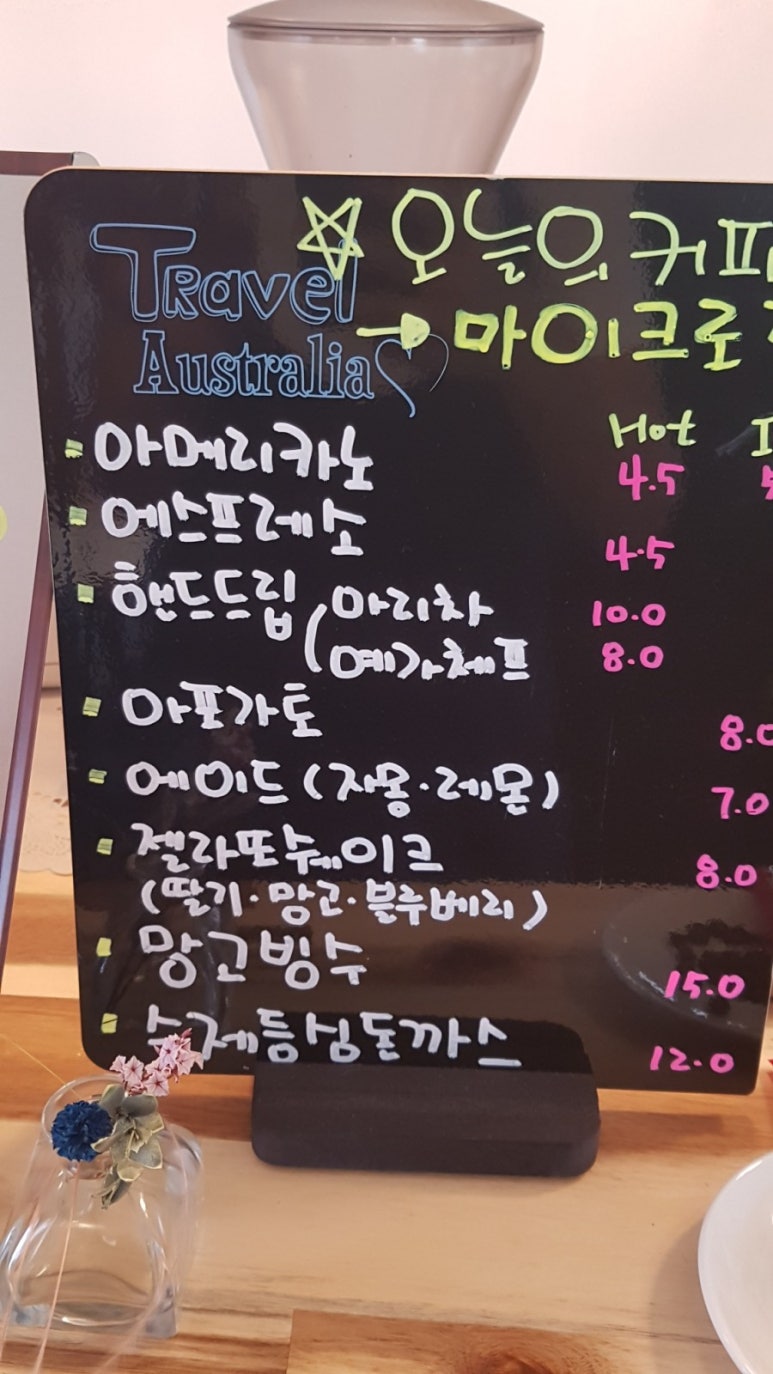 Travel
Australia
☆ 오늘의 커피
→ 마이크로
Hot
아메리카노 4.5
에스프레소 4.5
핸드드립 ( 마리차 10.0
예가체프 8.0
아포가토 8.0
에이드 (자몽·레몬) 7.0
젤라또쉐이크 8.0
(딸기·망고·블루베리)
망고빙수 15.0
수제등심돈까스 12.0